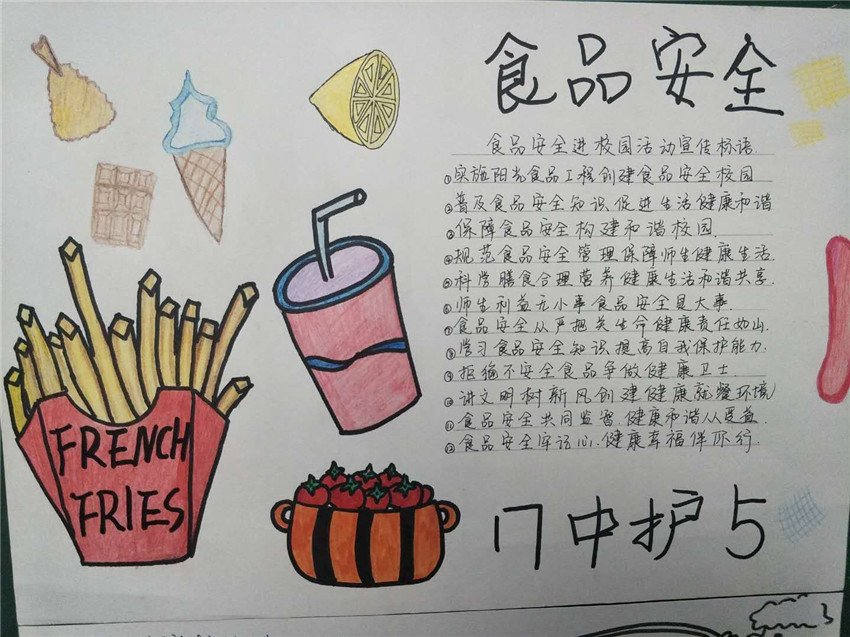 食品安全
食品安全进校园活动宣传标语
①实施阳光食品工程创建食品安全校园
②普及食品安全知识,促进生活健康和谐
③保障食品安全构建和谐校园.
④规范食品安全管理保障师生健康生活.
⑤科学膳食合理营养健康生活和谐共享.
⑥师生利益无小事食品安全是大事.
⑦食品安全从严把关生命健康责任如山.
⑧学习食品安全知识,提高自我保护能力.
⑨拒绝不安全食品争做健康卫士.
⑩讲文明树新风创建健康就餐环境
⑪食品安全共同监督,健康和谐从受益.
⑫食品安全牢记心.健康幸福伴你行.
FRENCH
FRIES
17中护5